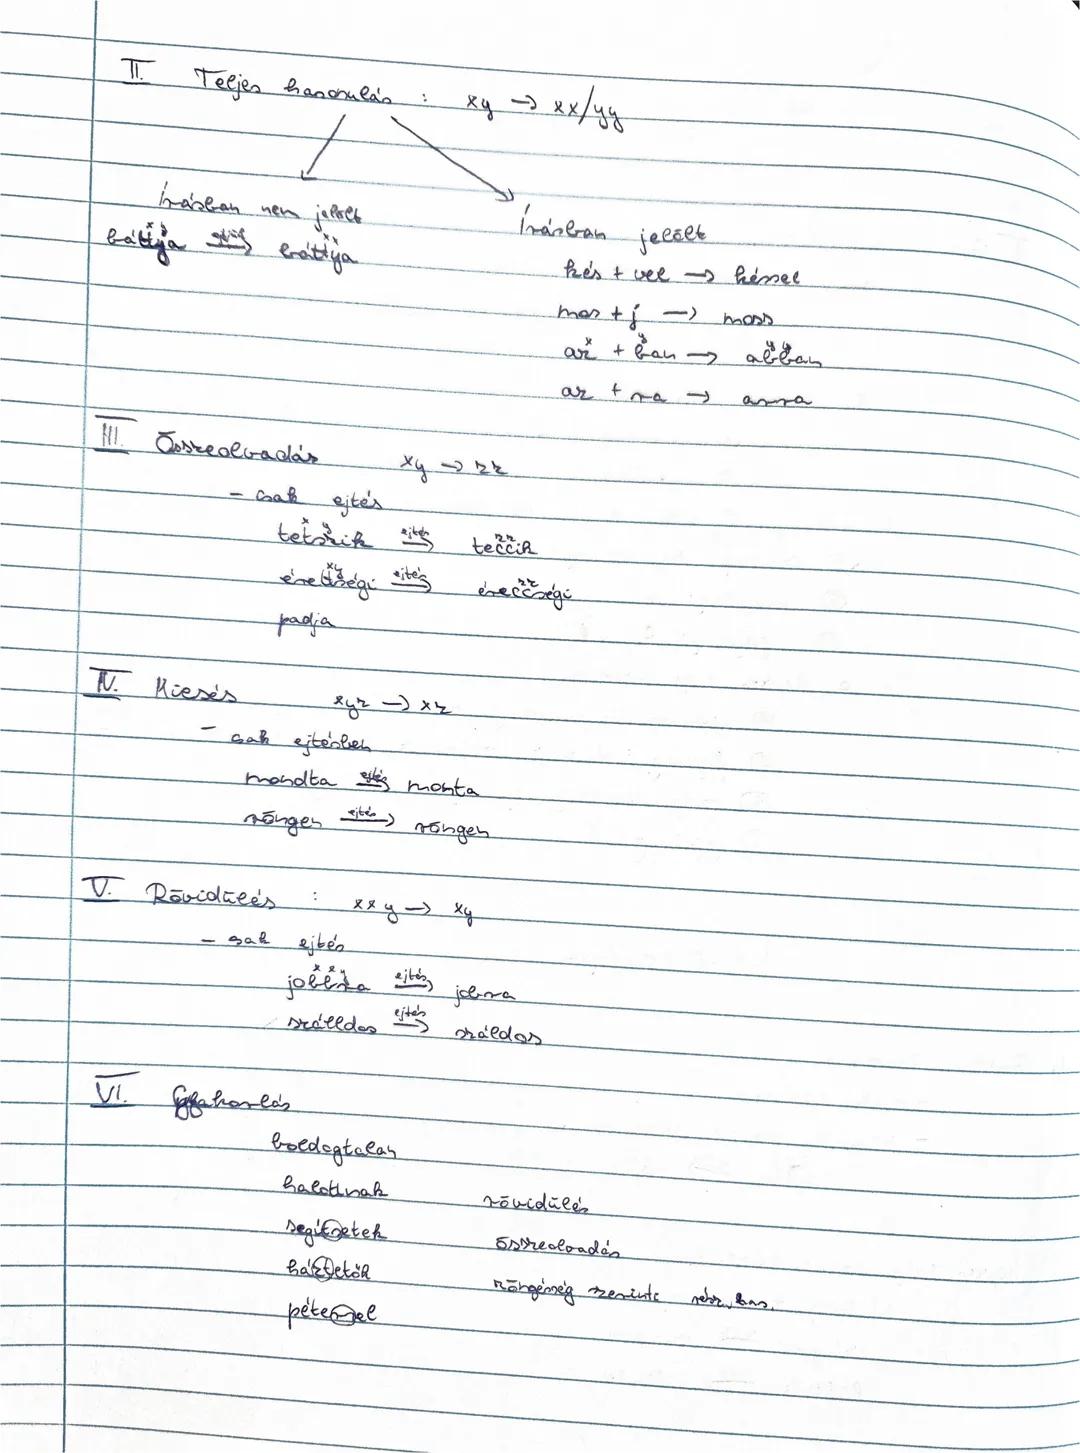 II. Teljes hasonulás : xy → xx/yy
Írásban nem jelölt
bátyja ejtés→ báttya
Írásban jelölt
kés + vel → késsel
mos + j → moss
az + ban → abban
az + ra → arra
III. Összeolvadás xy → zz
- csak ejtés
tetszik ejtés→ teccik
érettségi ejtés→ ereccségi
padja
IV. Kiesés xyz → xz
- csak ejtésben
mondta ejtés→ monta
röngen ejtés→ röngen
V. Rövidülés : xxy → xy
- csak ejtés
jobbra ejtés→ jobra
szálldos ejtés→ száldos
VI. Gyakorlás
boldogtalan
halottnak rövidülés
segítsetek összeolvadás
háztetők zöngésség szerinti rész. has.
péterrel